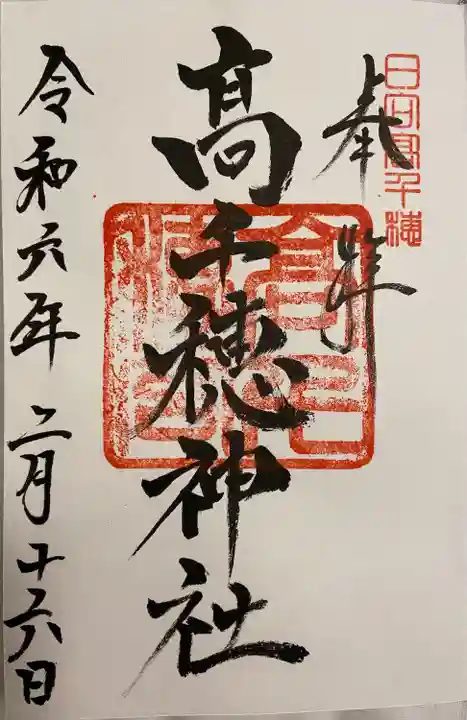 日向高千穂
奉拝
高千穂神社
令和六年二月十六日